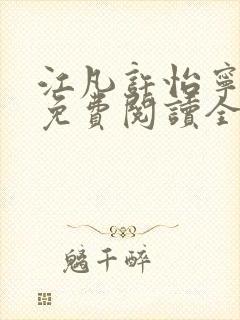 江凡許怡寧
免費閱讀全
魑千醉